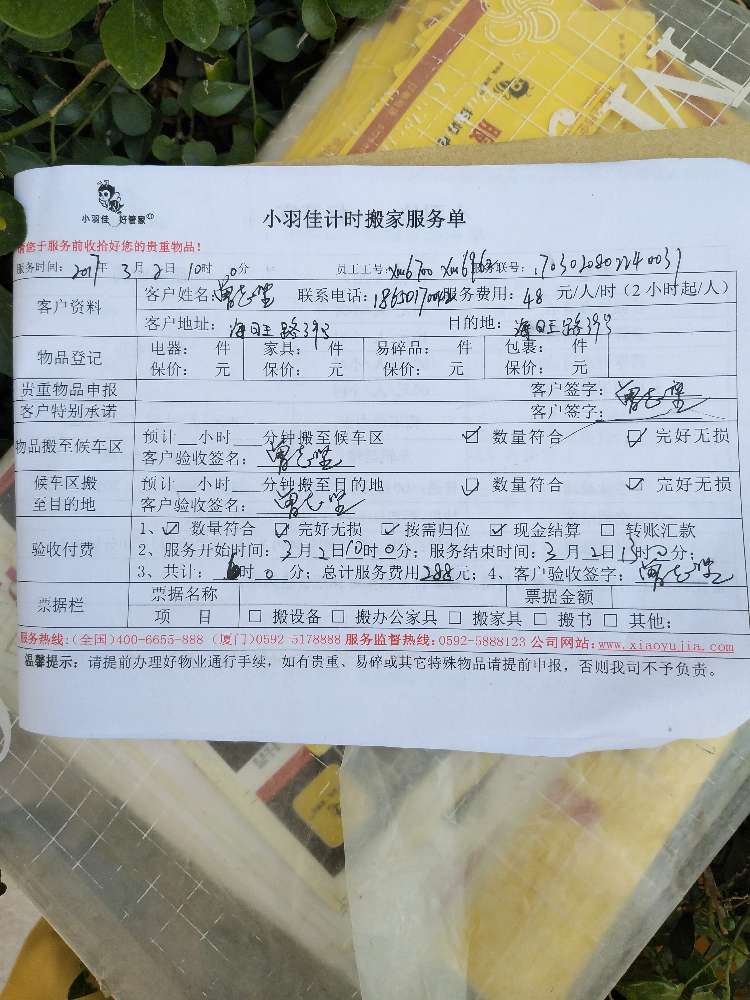 小羽佳 好管家
小羽佳计时搬家服务单
请您于服务前收拾好您的贵重物品!
服务时间: 2017年 3月 2日 10时 0分 员工工号: xm6700 服务联号: 17030208022400
客户资料 客户姓名: 联系电话: 服务费用: 48 元/人/时(2小时起/人)
客户地址: 目的地:
物品登记 电器: 件 家具: 件 易碎品: 件 包裹: 件
保价: 元 保价: 元 保价: 元 保价: 元
贵重物品申报 客户签字:
客户特别承诺 客户签字:
物品搬至候车区 预计__小时__分钟搬至候车区 ☑ 数量符合 ☑ 完好无损
客户验收签名:
候车区搬至目的地 预计__小时__分钟搬至目的地 ☑ 数量符合 ☑ 完好无损
客户验收签名:
验收付费 1、☑ 数量符合 ☑ 完好无损 ☑ 按需归位 ☑ 现金结算 □ 转账汇款
2、服务开始时间: 3月 2日10时 0分; 服务结束时间: 3月 2日13时 0分;
3、共计: 6时 0分; 总计服务费用288元; 4、客户验收签字:
票据栏 票据名称 票据金额
项 目 □ 搬设备 □ 搬办公家具 □ 搬家具 □ 搬书 □ 其他:
服务热线:(全国)400-6655-888 (厦门)0592-5178888 服务监督热线:0592-5888123 公司网站:www.xiaoyujia.com
温馨提示: 请提前办理好物业通行手续, 如有贵重、易碎或其它特殊物品请提前申报, 否则我司不予负责。